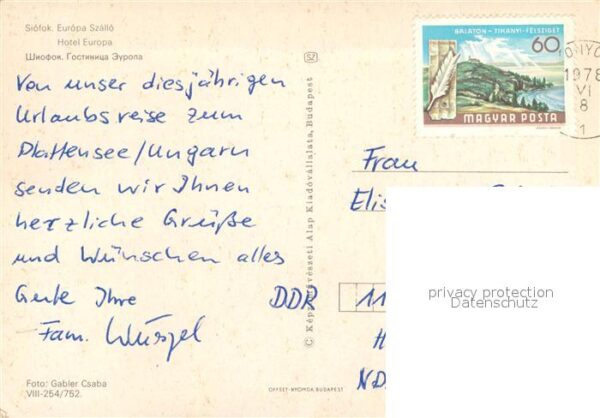 Siófok. Európa Szálló
Hotel Europa
Шиофок. Гостиница Эуропа
Von unser diesjährigen
Urlaubsreise zum
Plattensee/Ungarn
senden wir Ihnen
herzliche Grüße
und Wünschen alles
Gute Ihre
Fam.
Foto: Gabler Csaba
VIII-254/752.
SZ
© Képzőművészeti Alap Kiadóvállalata, Budapest
OFFSET-NYOMDA BUDAPEST
BALATON - TIHANYI-FÉLSZIGET
60
MAGYAR POSTA
1978
VI
8
1
Frau
DDR 11
privacy protection
Datenschutz